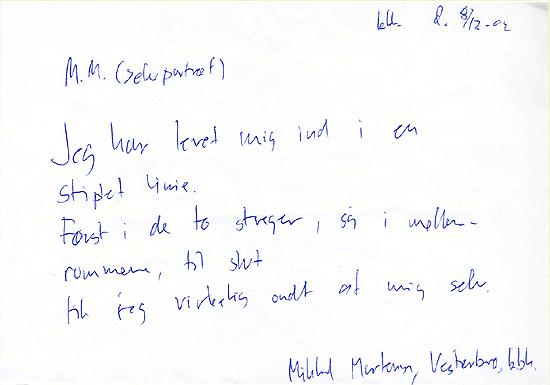 kbh. d. 8/12-02
M.M. (selvportræt)
Jeg har levet mig ind i en
stiplet linie.
Først i de to streger, så i mellem-
rummene, til slut
fik jeg virkelig ondt af mig selv.
Mikkel Mortensen, Vesterbro, kbh.